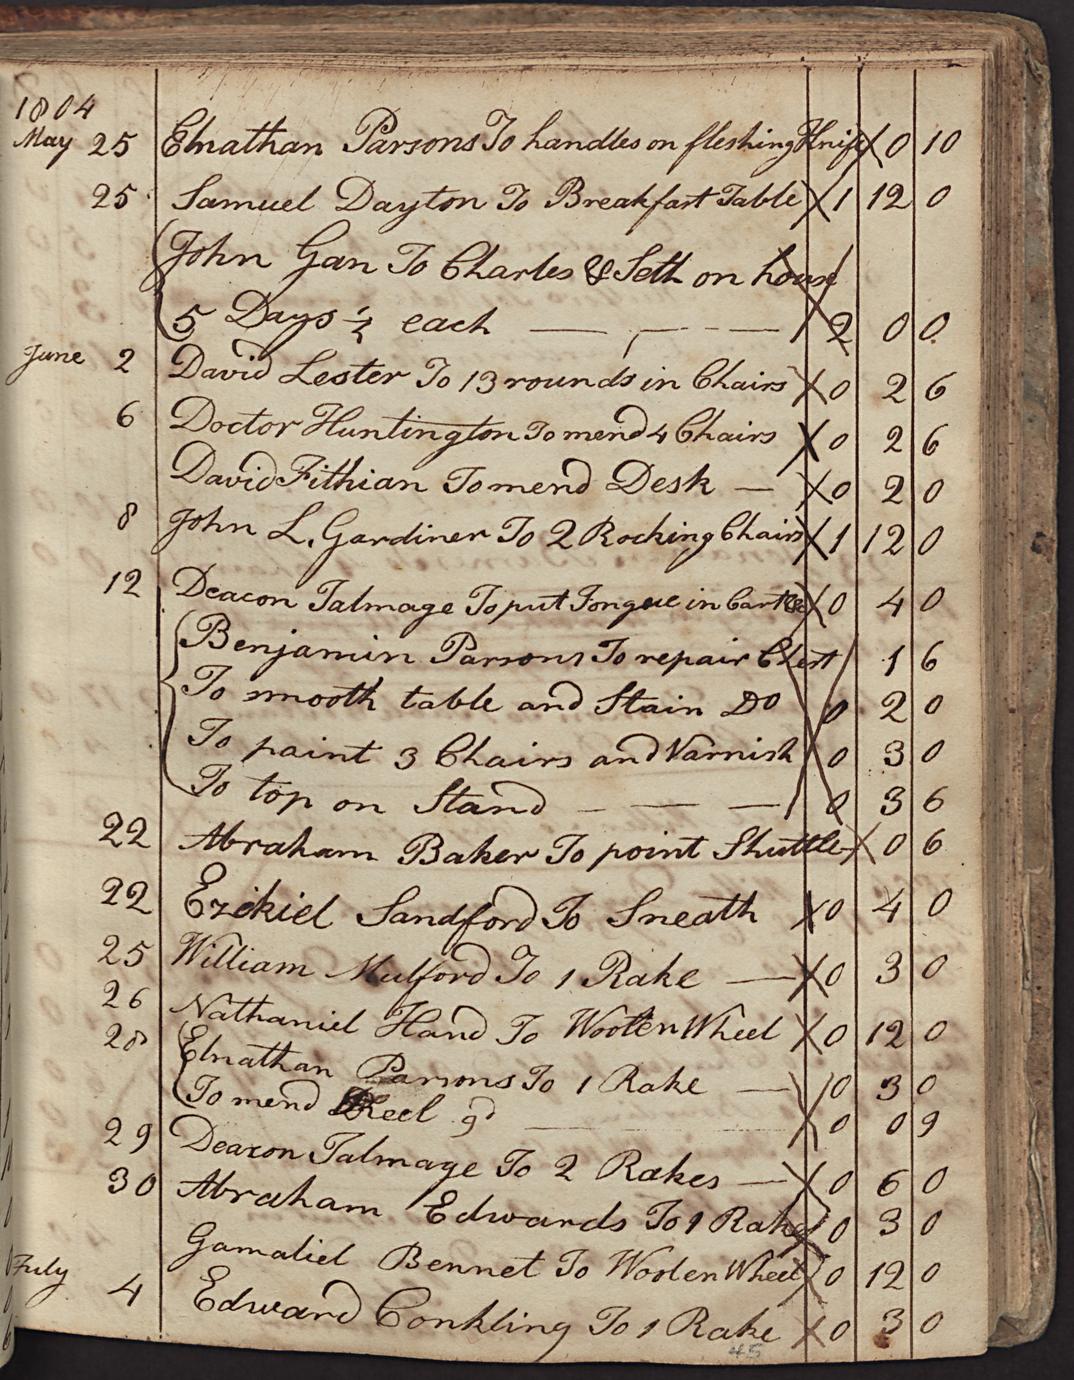 1804
May 25 Elnathan Parsons To handles on fleshing Knife X 0 10
25 Samuel Dayton To Breakfast Table X 1 12 0
John Gan To Charles & Seth on house
5 Days ½ each — — — 2 0 0
June 2 David Lester To 13 rounds in Chairs X 0 2 6
6 Doctor Huntington To mend 4 Chairs X 0 2 6
David Fithian To mend Desk — X 0 2 0
8 John L. Gardiner To 2 Rocking Chairs X 1 12 0
12 Deacon Talmage To put Tongue in Cart X 0 4 0
Benjamin Parsons To repair Chest 1 6
To smooth table and Stain Do 0 2 0
To paint 3 Chairs and Varnish 0 3 0
To top on Stand — — — 0 3 6
22 Abraham Baker To point Shuttle X 0 6
22 Ezekiel Sandford To Sneath X 0 4 0
25 William Mulford To 1 Rake — X 0 3 0
26 Nathaniel Hand To Woolen Wheel X 0 12 0
28 Elnathan Parsons To 1 Rake — 0 3 0
To mend Reel 9d — X 0 0 9
29 Deacon Talmage To 2 Rakes — X 0 6 0
30 Abraham Edwards To 1 Rake X 0 3 0
Gamaliel Bennet To Woolen Wheel X 0 12 0
July 4 Edward Conkling To 1 Rake X 0 3 0
45